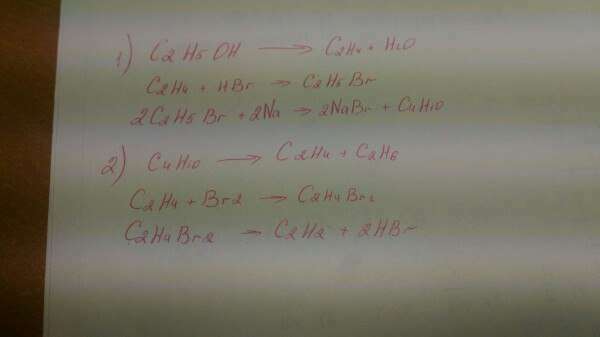 1) C2H5OH → C2H4 + H2O
C2H4 + HBr → C2H5Br
2C2H5Br + 2Na → 2NaBr + C4H10
2) C4H10 → C2H4 + C2H6
C2H4 + Br2 → C2H4Br2
C2H4Br2 → C2H2 + 2HBr